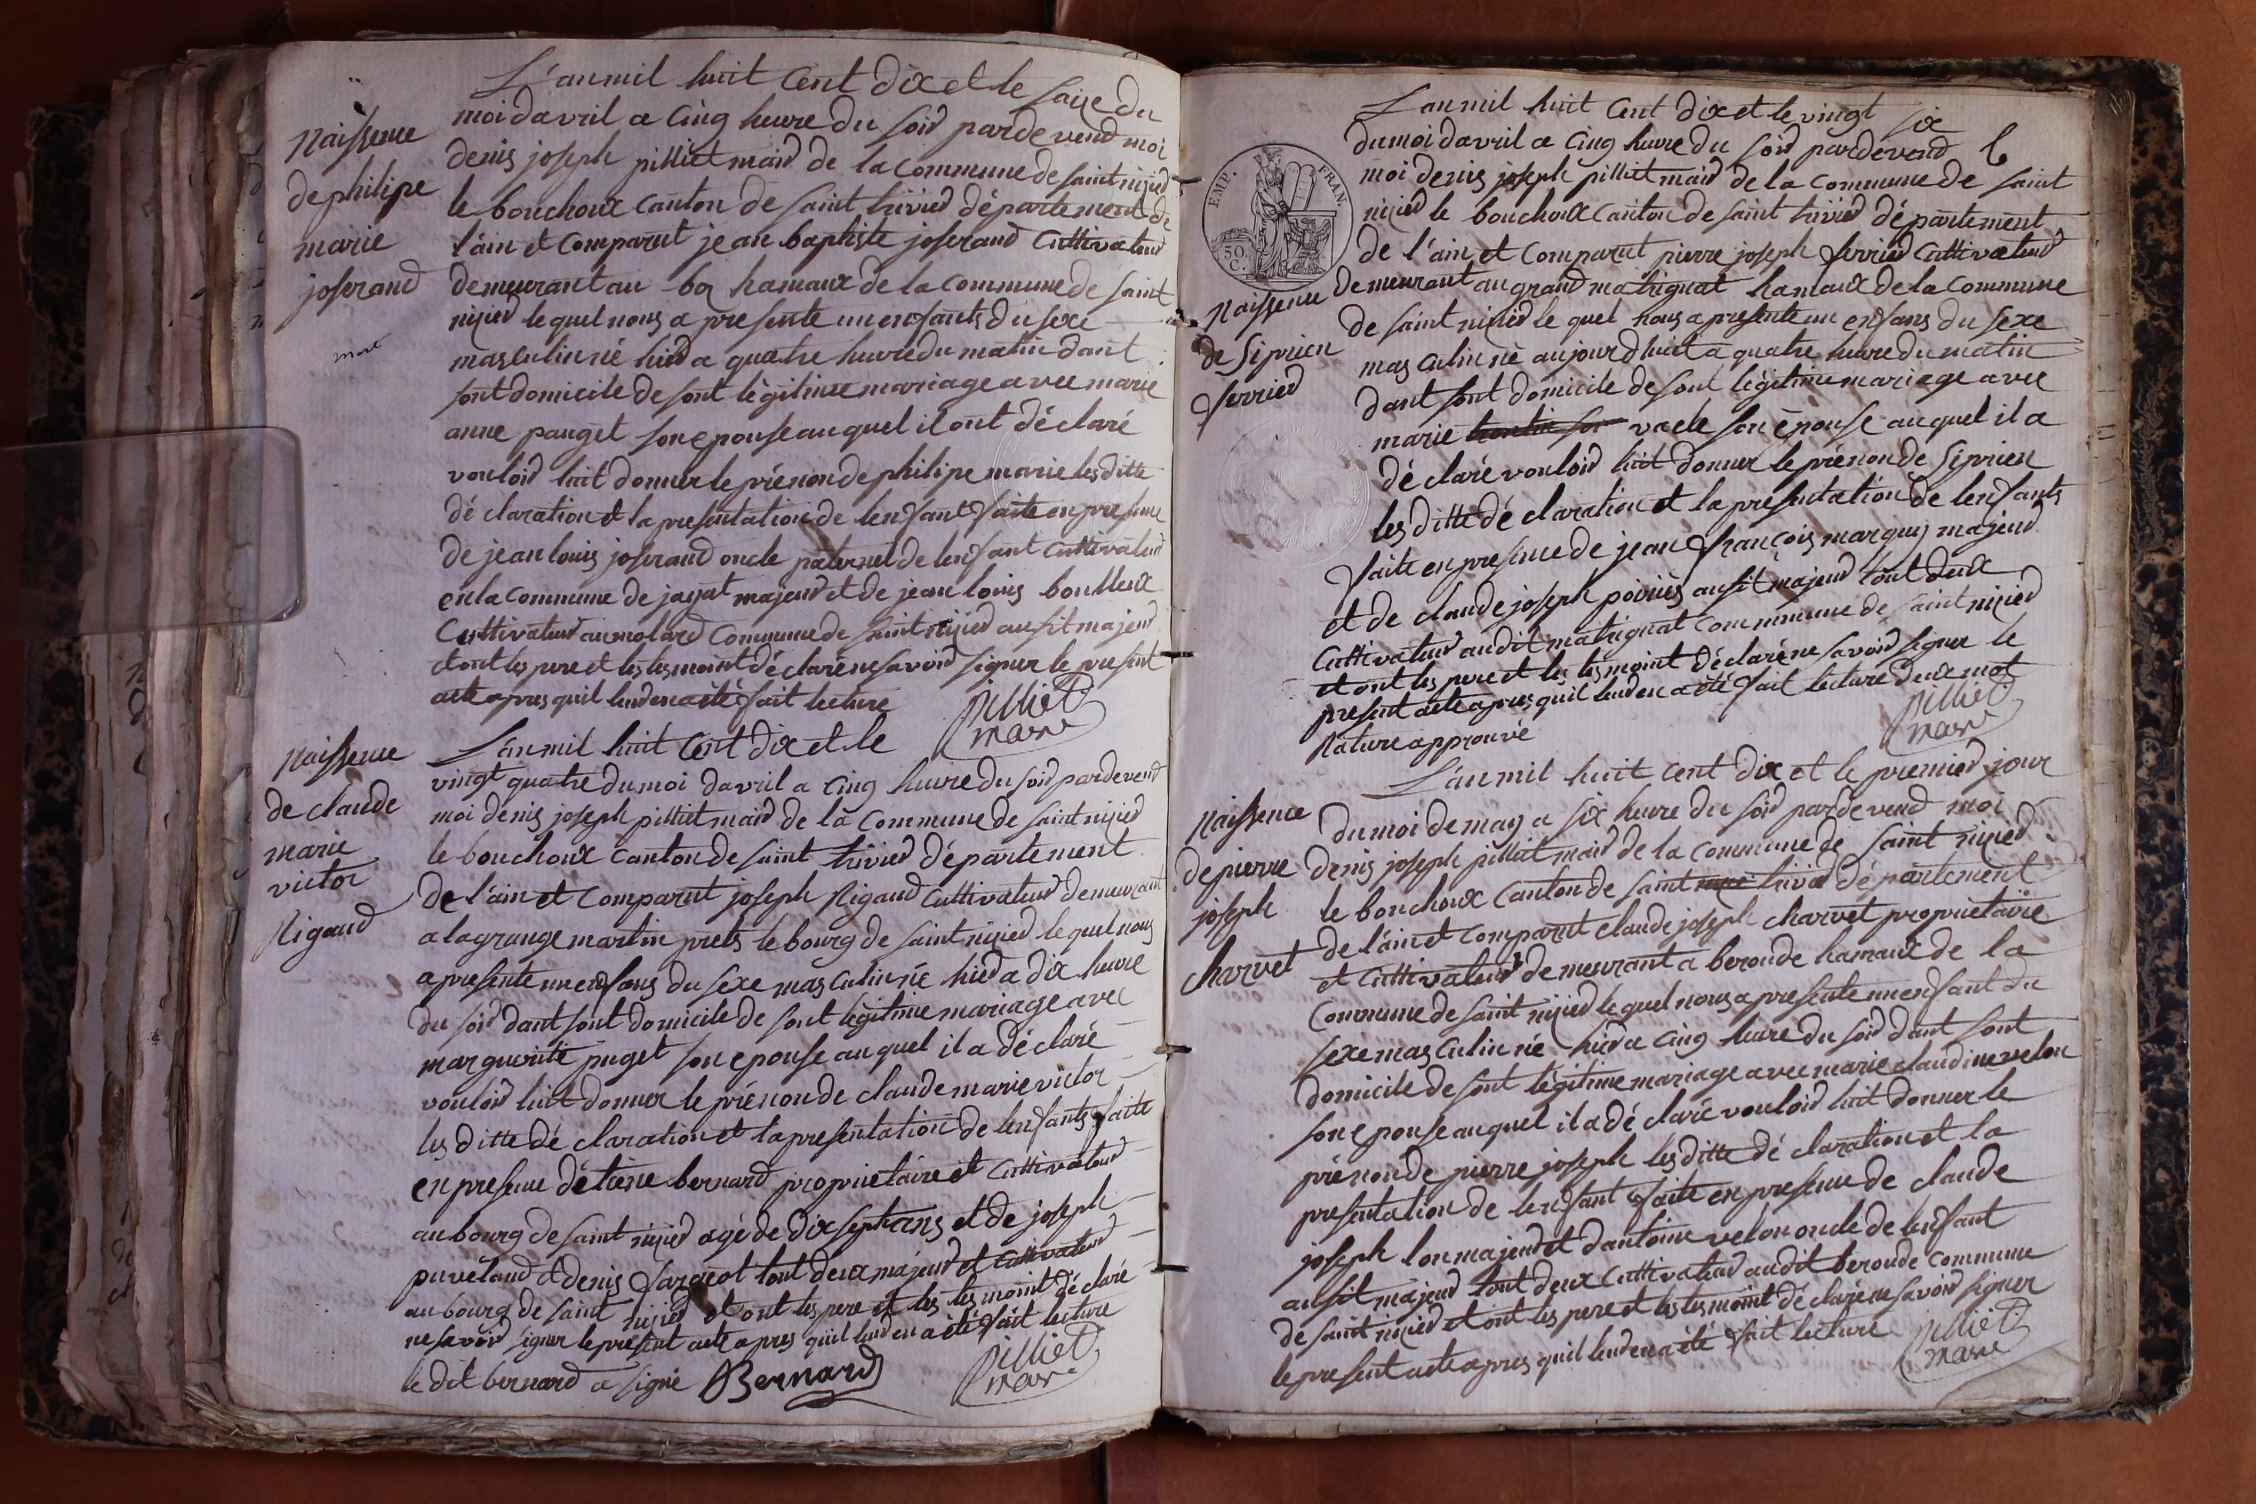 L'an mil huit Cent dix et le saize du
moi davril a Cinq heure du soir par de vend moi
denis joseph pilliet mair de la Commune de saint nizier
le bouchoux Canton de saint trivier département de
l'ain et Comparut jean baptiste joserand Cultivateur
demeurant au boz hamaux de la Commune de saint
nizier le quel nous a presente un enfants du sexe
masculin né hier a quatre heure du matin dant
sont domicile de sont légitime mariage avec marie
anne pauget son epouse auquel il ont déclaré
vouloir luit donner le prénon de philipe marie les ditte
déclaration et la presentation de lenfant faite en presence
de jean louis joserand oncle paternel de lenfant Cultivateur
en la Commune de jayat majeur et de jean louis boulleux
Cultivateur au molard Commune de saint nizier ausit majeur
et ont les pere et les tesmoint déclaré ne savoir signer le present
acte apres quil leur en a été fait lecture
pilliet
maire
naissence
de philipe
marie
joserand
mort
L'an mil huit Cent dix et le
vingt quatre du moi davril a Cinq heure du soir par de vend
moi denis joseph pilliet mair de la Commune de saint nizier
le bouchoux Canton de saint trivier département
de l'ain et Comparut joseph Rigaud Cultivateur demeurant
a la grange martin prets le bourg de saint nizier le quel nous
a presente un enfans du sexe masculin né hier a dix heure
du soir dant sont domicile de sont légitime mariage avec
marguerite puget son epouse auquel il a déclaré
vouloir luit donner le prénon de claude marie victor
les ditte déclaration et la presentation de lenfants faite
en presence détiene bernard proprietaire et Cultivateur
au bourg de saint nizier agé de dix sept ans et de joseph
puvelaud et denis fargeot tout deux majeur et Cultivateur
au bourg de saint nizier et ont les pere et les tesmoint déclaré
ne savoir signer le present acte apres quil leur en a été fait lecture
le dit bernard a signé Bernard
pilliet
maire
naissence
de claude
marie
victor
Rigaud
EMP. FRAN.
50
C.
L'an mil huit Cent dix et le vingt six
du moi davril a Cinq heure du soir par de vend
moi denis joseph pilliet mair de la Commune de saint
nizier le bouchoux Canton de saint trivier département
de l'ain et Comparut pierre joseph ferrier Cultivateur
demeurant au grand matrignat hamaux de la Commune
de saint nizier le quel nous a presente un enfans du sexe
masculin né aujourdhuit a quatre heure du matin
dant sont domicile de sont légitime mariage avec
marie vacle son épouse auquel il a
déclaré vouloir luit donner le prénon de siprien
les ditte déclaration et la presentation de lenfants
faite en presence de jean françois marquis majeur
et de claude joseph poirier ausit majeur tout deux
Cultivateur audit matrignat Commune de saint nizier
et ont les pere et les tesmoint déclaré ne savoir signer le
present acte apres quil leur en a été fait lecture deux mot
Rature approuvé
pilliet
maire
naissence
de siprien
ferrier
L'an mil huit cent dix et le premier jour
du moi de may a six heure du soir par de vend moi
denis joseph pilliet mair de la Commune de saint nizier
le bouchoux Canton de saint trivier département
de l'ain et comparut claude joseph charvet proprietaire
et Cultivateur demeurant a beroude hamaux de la
Commune de saint nizier le quel nous a presente un enfant du
sexe masculin né hier a Cinq heure du soir dant sont
domicile de sont légitime mariage avec marie claudine velon
son epouse auquel il a déclaré vouloir luit donner le
prénon de pierre joseph les ditte déclaration et la
presentation de lenfant faite en presence de claude
joseph lon majeur et dantoine velon oncle de lenfant
ausit majeur tout deux Cultivateur audit beroude Commune
de saint nizier et ont les pere et les tesmoint déclaré ne savoir signer
le present acte apres quil leur en a été fait lecture
pilliet
maire
naissence
de pierre
joseph
charvet